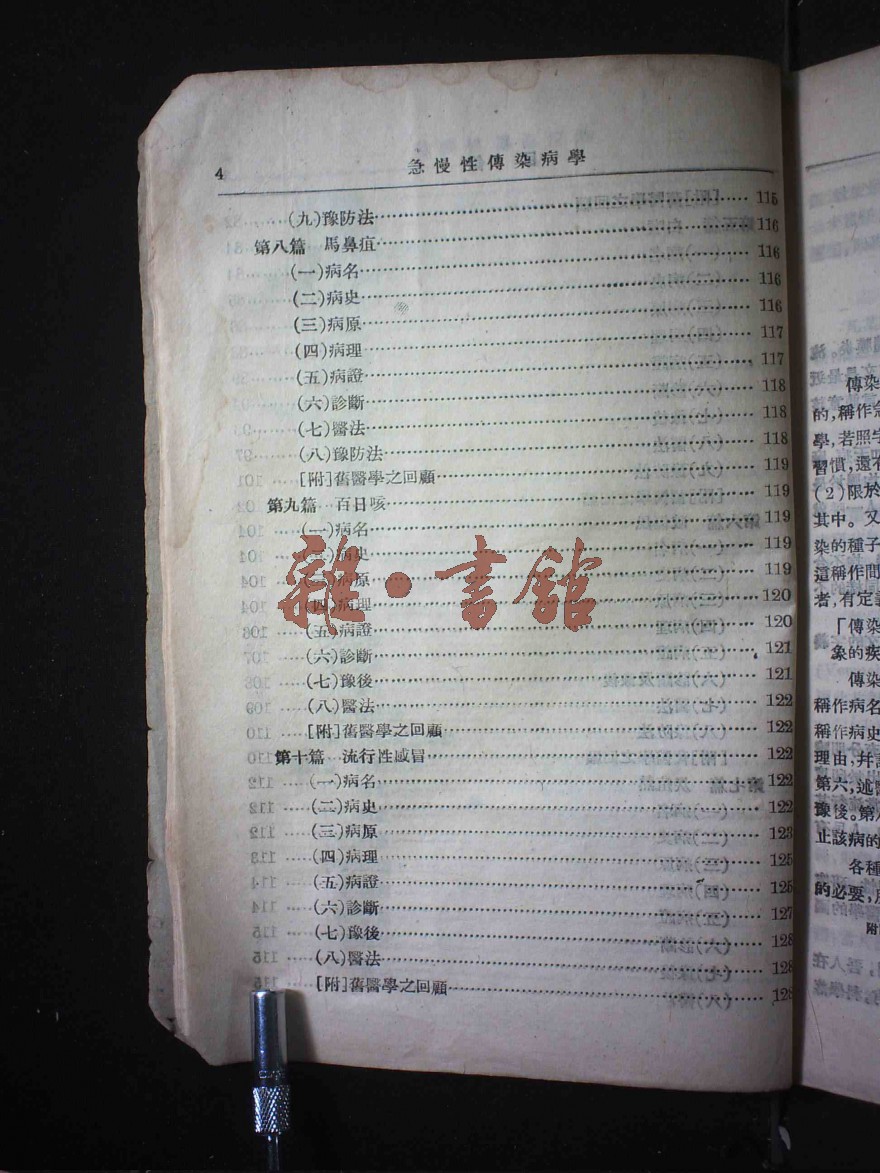 4 急慢性傳染病學
(九)豫防法……115
第八篇 馬鼻疽……116
(一)病名……116
(二)病史……116
(三)病原……116
(四)病理……117
(五)病證……117
(六)診斷……118
(七)醫法……118
(八)豫防法……118
[附]舊醫學之回顧……119
第九篇 百日咳……119
(一)病名……119
(二)病史……119
(三)病原……119
(四)病理……120
(五)病證……120
(六)診斷……121
(七)豫後……121
(八)醫法……122
[附]舊醫學之回顧……122
第十篇 流行性感冒……122
(一)病名……122
(二)病史……122
(三)病原……123
(四)病理……125
(五)病證……125
(六)診斷……127
(七)豫後……128
(八)醫法……128
[附]舊醫學之回顧……128
雜·書館
傳染
的,稱作急
學,若照字
習慣,還有
(2)限於
其中。又
染的種子
這稱作間
者,有定義
「傳染
象的疾
傳染
稱作病名
稱作病史
理由,幷
第六,述醫
豫後。第
止該病的
各種
的必要,
附